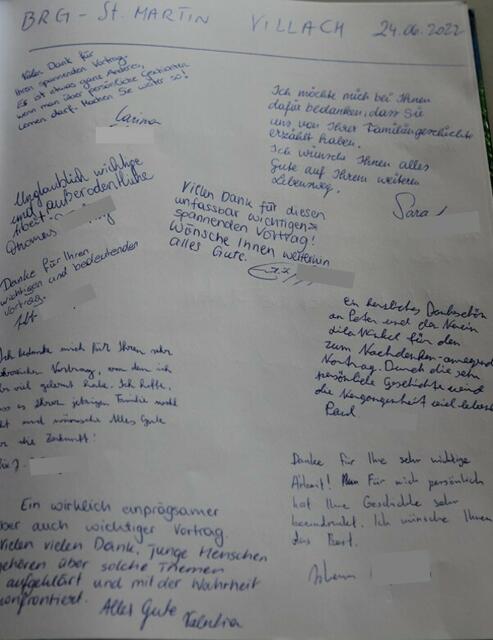 BRG - ST. MARTIN VILLACH 24.06.2022
Vielen Dank für
Ihren spannenden Vortrag.
Es ist etwas ganz Anderes,
wenn man über persönliche
lernen darf. Machen Sie weiter so!
Carina
Ich möchte mich bei Ihnen
dafür bedanken, dass Sie
uns von Ihrer Familiengeschichte
erzählt haben.
Ich wünsche Ihnen alles
Gute auf Ihrem weiteren
Lebensweg.
Sara
Unglaublich wichtige
und
Arbeit!
Thomas
Vielen Dank für diesen
unfassbar wichtigen &
spannenden Vortrag!
Wünsche Ihnen weiterhin
alles Gute.
Danke für Ihren
wichtigen und bedeutenden
Vortrag.
Ein herzliches Dankeschön
an Peter und den Verein
Lila Winkel für den
zum Nachdenken
Vortrag. Durch die sehr
persönliche Geschichte wird
die Vergangenheit viel
Paul
Ich bedanke mich für Ihren sehr
Vortrag, von dem ich
viel gelernt habe. Ich hoffe,
es Ihrer jetzigen Familie
und wünsche Alles Gute
die Zukunft!
Danke für Ihre sehr wichtige
Arbeit! Für mich persönlich
hat Ihre Geschichte sehr
beeindruckt. Ich wünsche Ihnen
das Best.
Ein wirklich einprägsamer
aber auch wichtiger Vortrag.
Vielen vielen Dank. Junge Menschen
gehören über solche Themen
aufgeklärt und mit der Wahrheit
konfrontiert.
Alles Gute
Valentina